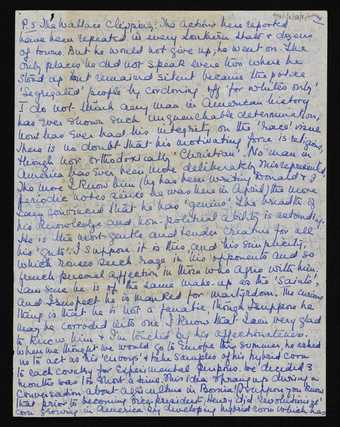 P.S The Wallace Clipping: The actions here reported
have been repeated in every Southern State & dozens
of towns. But he would not give up, he went on. The
only places he did not speak were two where he
stood up but remained silent because the police
'segregated' people by cordoning off 'for whites only'
I do not think any man in American history
has ever shown such unquenchable determination,
none has ever had his integrity on the 'race' issue
There is no doubt that his motivating force is religion,
though not orthodoxically 'Christian'. No man in
America has ever been more deliberately misrepresented.
The more I know him (he has been writing Donald & I
periodic notes since he was here in April) the more
I am convinced that he has 'genius'. The breadth of
his knowledge and non-political ability is astounding.
He is the most gentle and tender creature for all
his 'guts'. I suppose it is this and his simplicity,
which raises such rage in his opponents and so
much personal affection in those who agree with him.
I am sure he is of the same make-up as the 'Saints',
and I suspect he is marked for martyrdom. The curious
thing is that he is not a fanatic, though I suppose he
may be corroded into one. I know that I am very glad
to know him & I'm touched by his affectionateness.
When we thought we would go to Europe this summer, he asked
us to act as his 'envoys' & take samples of his hybrid corn
to each country for experimental purposes. We decided 3
months was too short a time. This idea sprang up during a
conversation about agriculture in Bosnia. I suppose you know
that prior to becoming vice-president, Henry did revolutionize
corn growing in America by developing hybrid corn which has